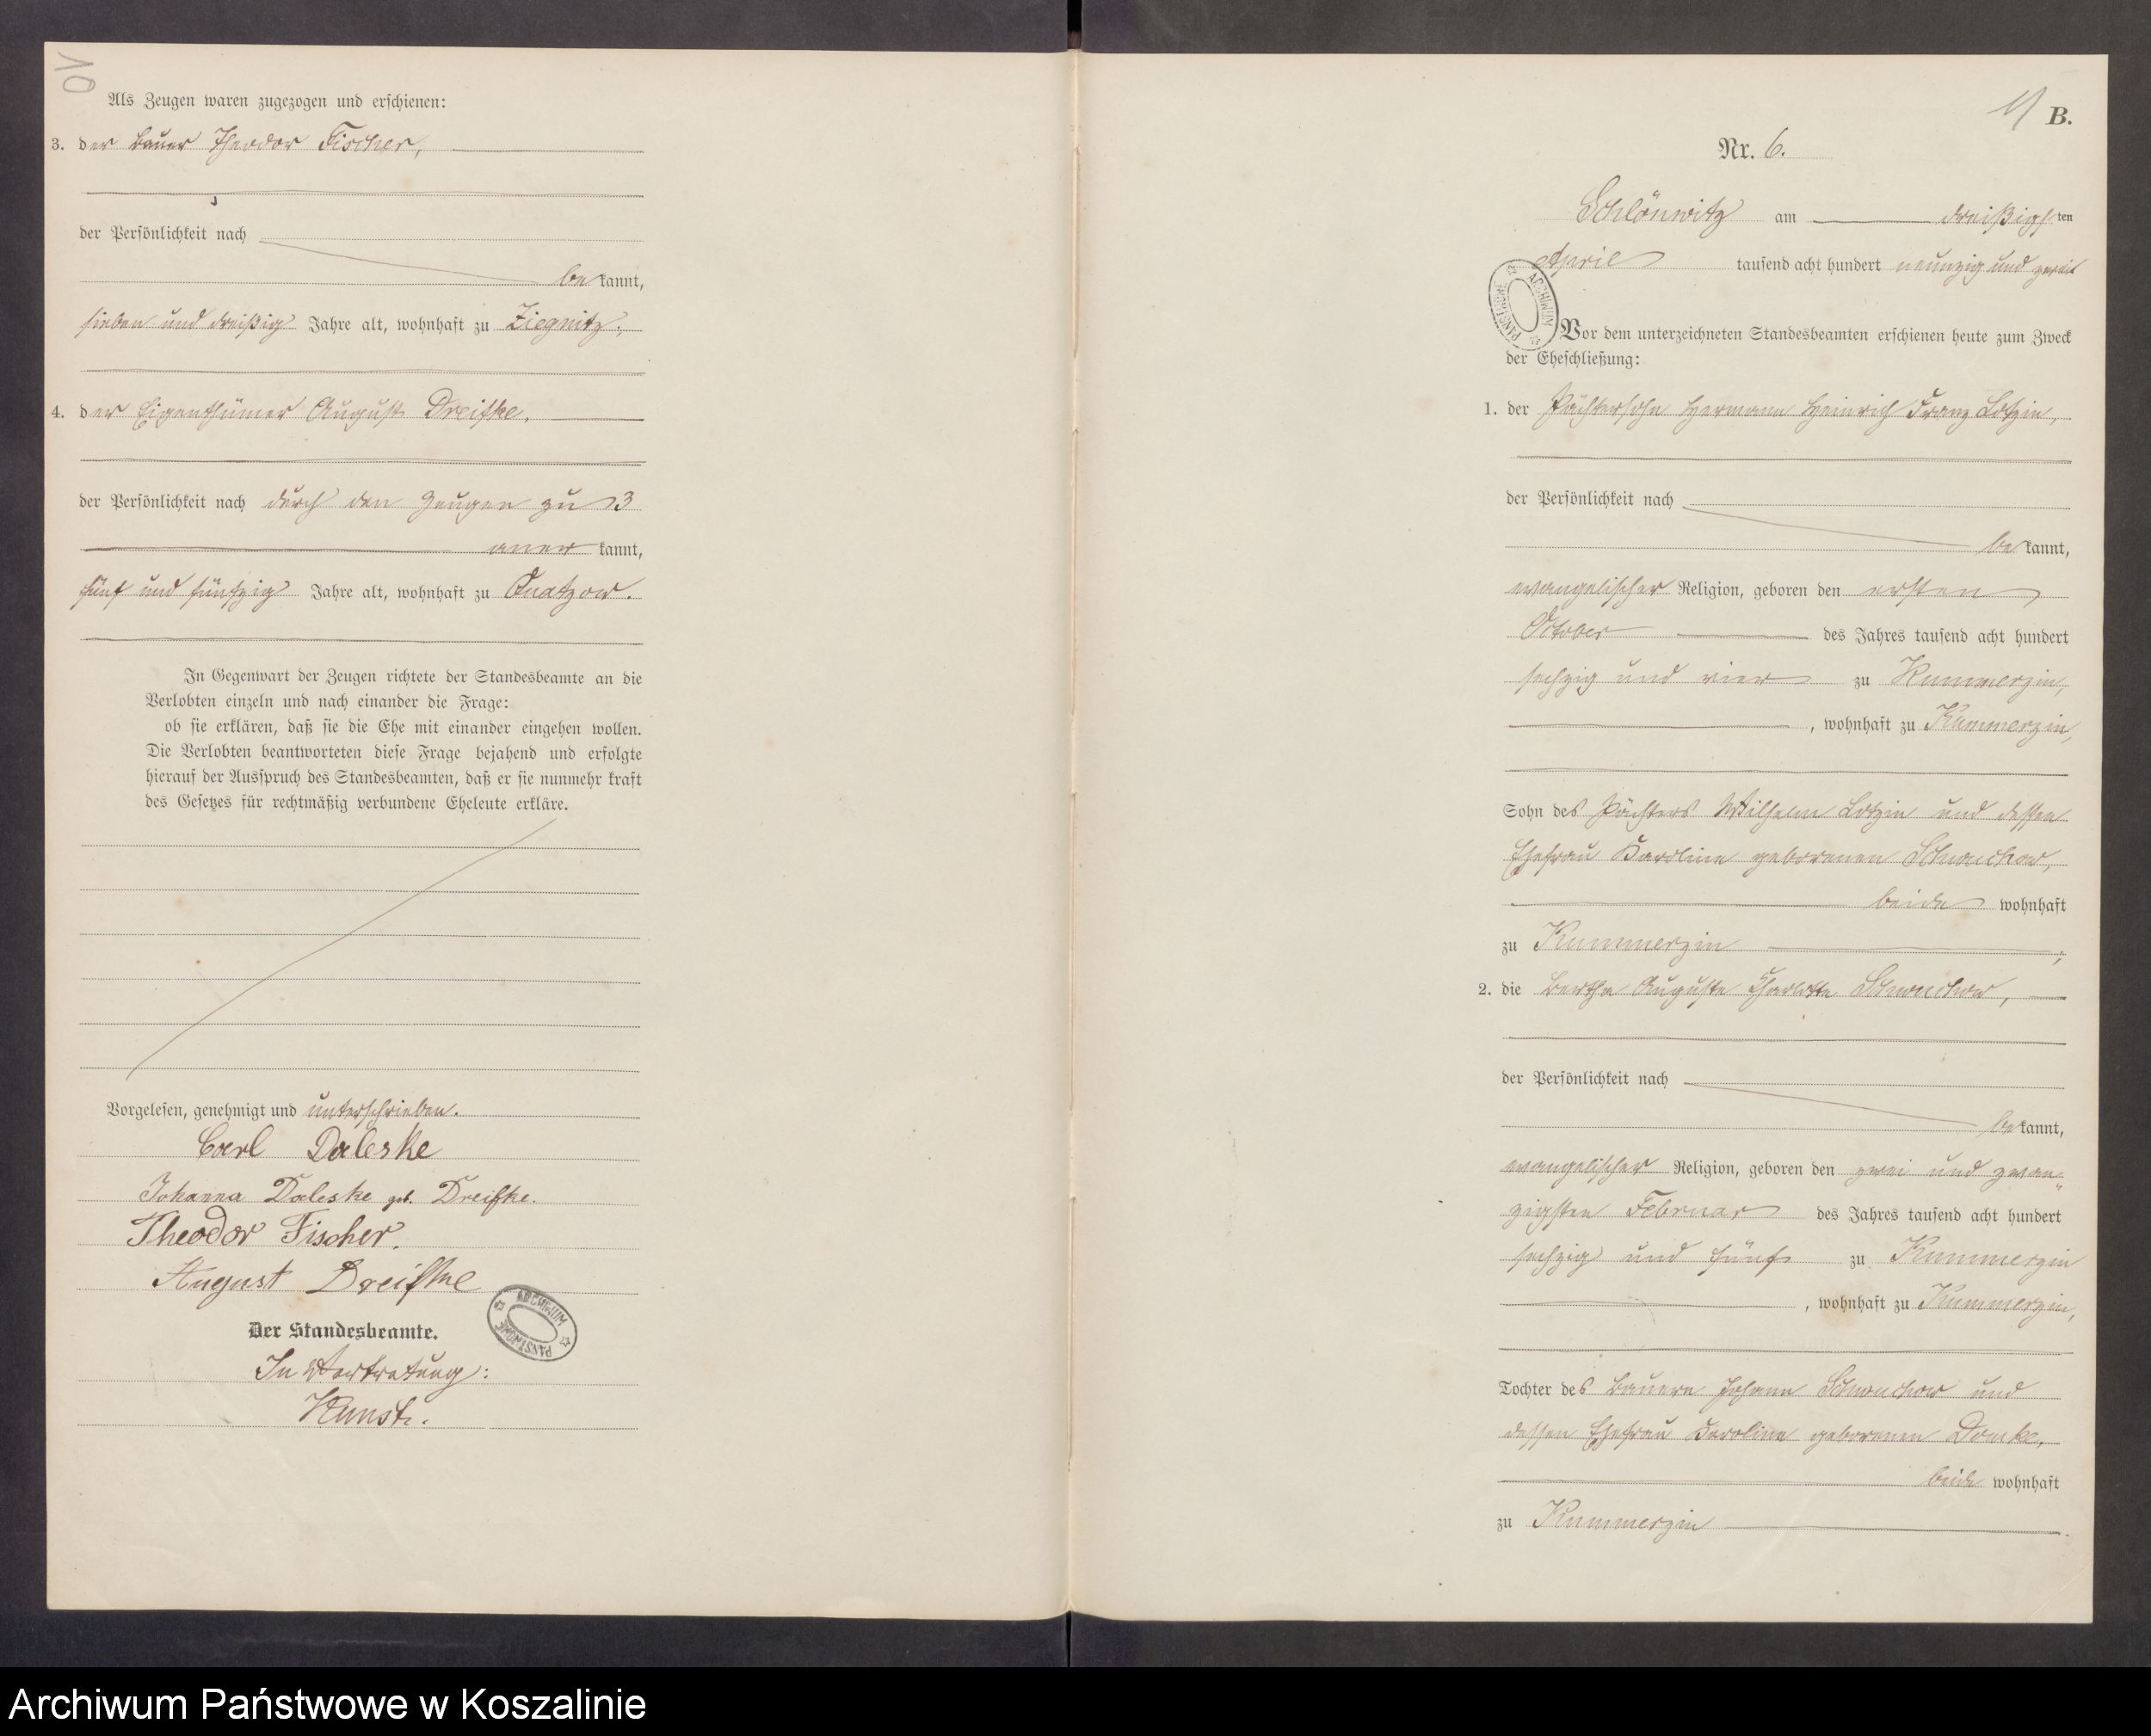 10
Als Zeugen waren zugezogen und erschienen:
3. der Bauer Theodor Fischer,
der Persönlichkeit nach
bekannt,
sieben und dreißig Jahre alt, wohnhaft zu Ziegnitz;
4. der Eigenthümer August Dreifke,
der Persönlichkeit nach durch den Zeugen zu 3
anerkannt,
fünf und fünfzig Jahre alt, wohnhaft zu Quatzow.
In Gegenwart der Zeugen richtete der Standesbeamte an die
Verlobten einzeln und nach einander die Frage:
ob sie erklären, daß sie die Ehe mit einander eingehen wollen.
Die Verlobten beantworteten diese Frage bejahend und erfolgte
hierauf der Ausspruch des Standesbeamten, daß er sie nunmehr kraft
des Gesetzes für rechtmäßig verbundene Eheleute erkläre.
Vorgelesen, genehmigt und unterschrieben.
Carl Daleske
Johanna Daleske geb. Dreifke.
Theodor Fischer.
August Dreifke
ARCHIWUM PAŃSTWOWE
Der Standesbeamte.
In Vertretung:
11 B.
Nr. 6.
Schlönwitz am dreißigsten
April tausend acht hundert neunzig und zwei
ARCHIWUM PAŃSTWOWE
Vor dem unterzeichneten Standesbeamten erschienen heute zum Zweck
der Eheschließung:
1. der Pächtersohn Hermann Heinrich Franz Lotzin,
der Persönlichkeit nach
bekannt,
evangelischer Religion, geboren den ersten
October des Jahres tausend acht hundert
sechzig und vier zu Kummerzin,
, wohnhaft zu Kummerzin,
Sohn des Pächters Wilhelm Lotzin und dessen
Ehefrau Karoline geborenen Schwuchow,
beide wohnhaft
zu Kummerzin ;
2. die Bertha Auguste Charlotte Schwuchow,
der Persönlichkeit nach
bekannt,
evangelischer Religion, geboren den zwei und zwan„
zigsten Februar des Jahres tausend acht hundert
sechzig und fünf zu Kummerzin
, wohnhaft zu Kummerzin,
Tochter des Bauern Johann Schwuchow und
dessen Ehefrau Karoline geborenen
beide wohnhaft
zu Kummerzin .
Archiwum Państwowe w Koszalinie